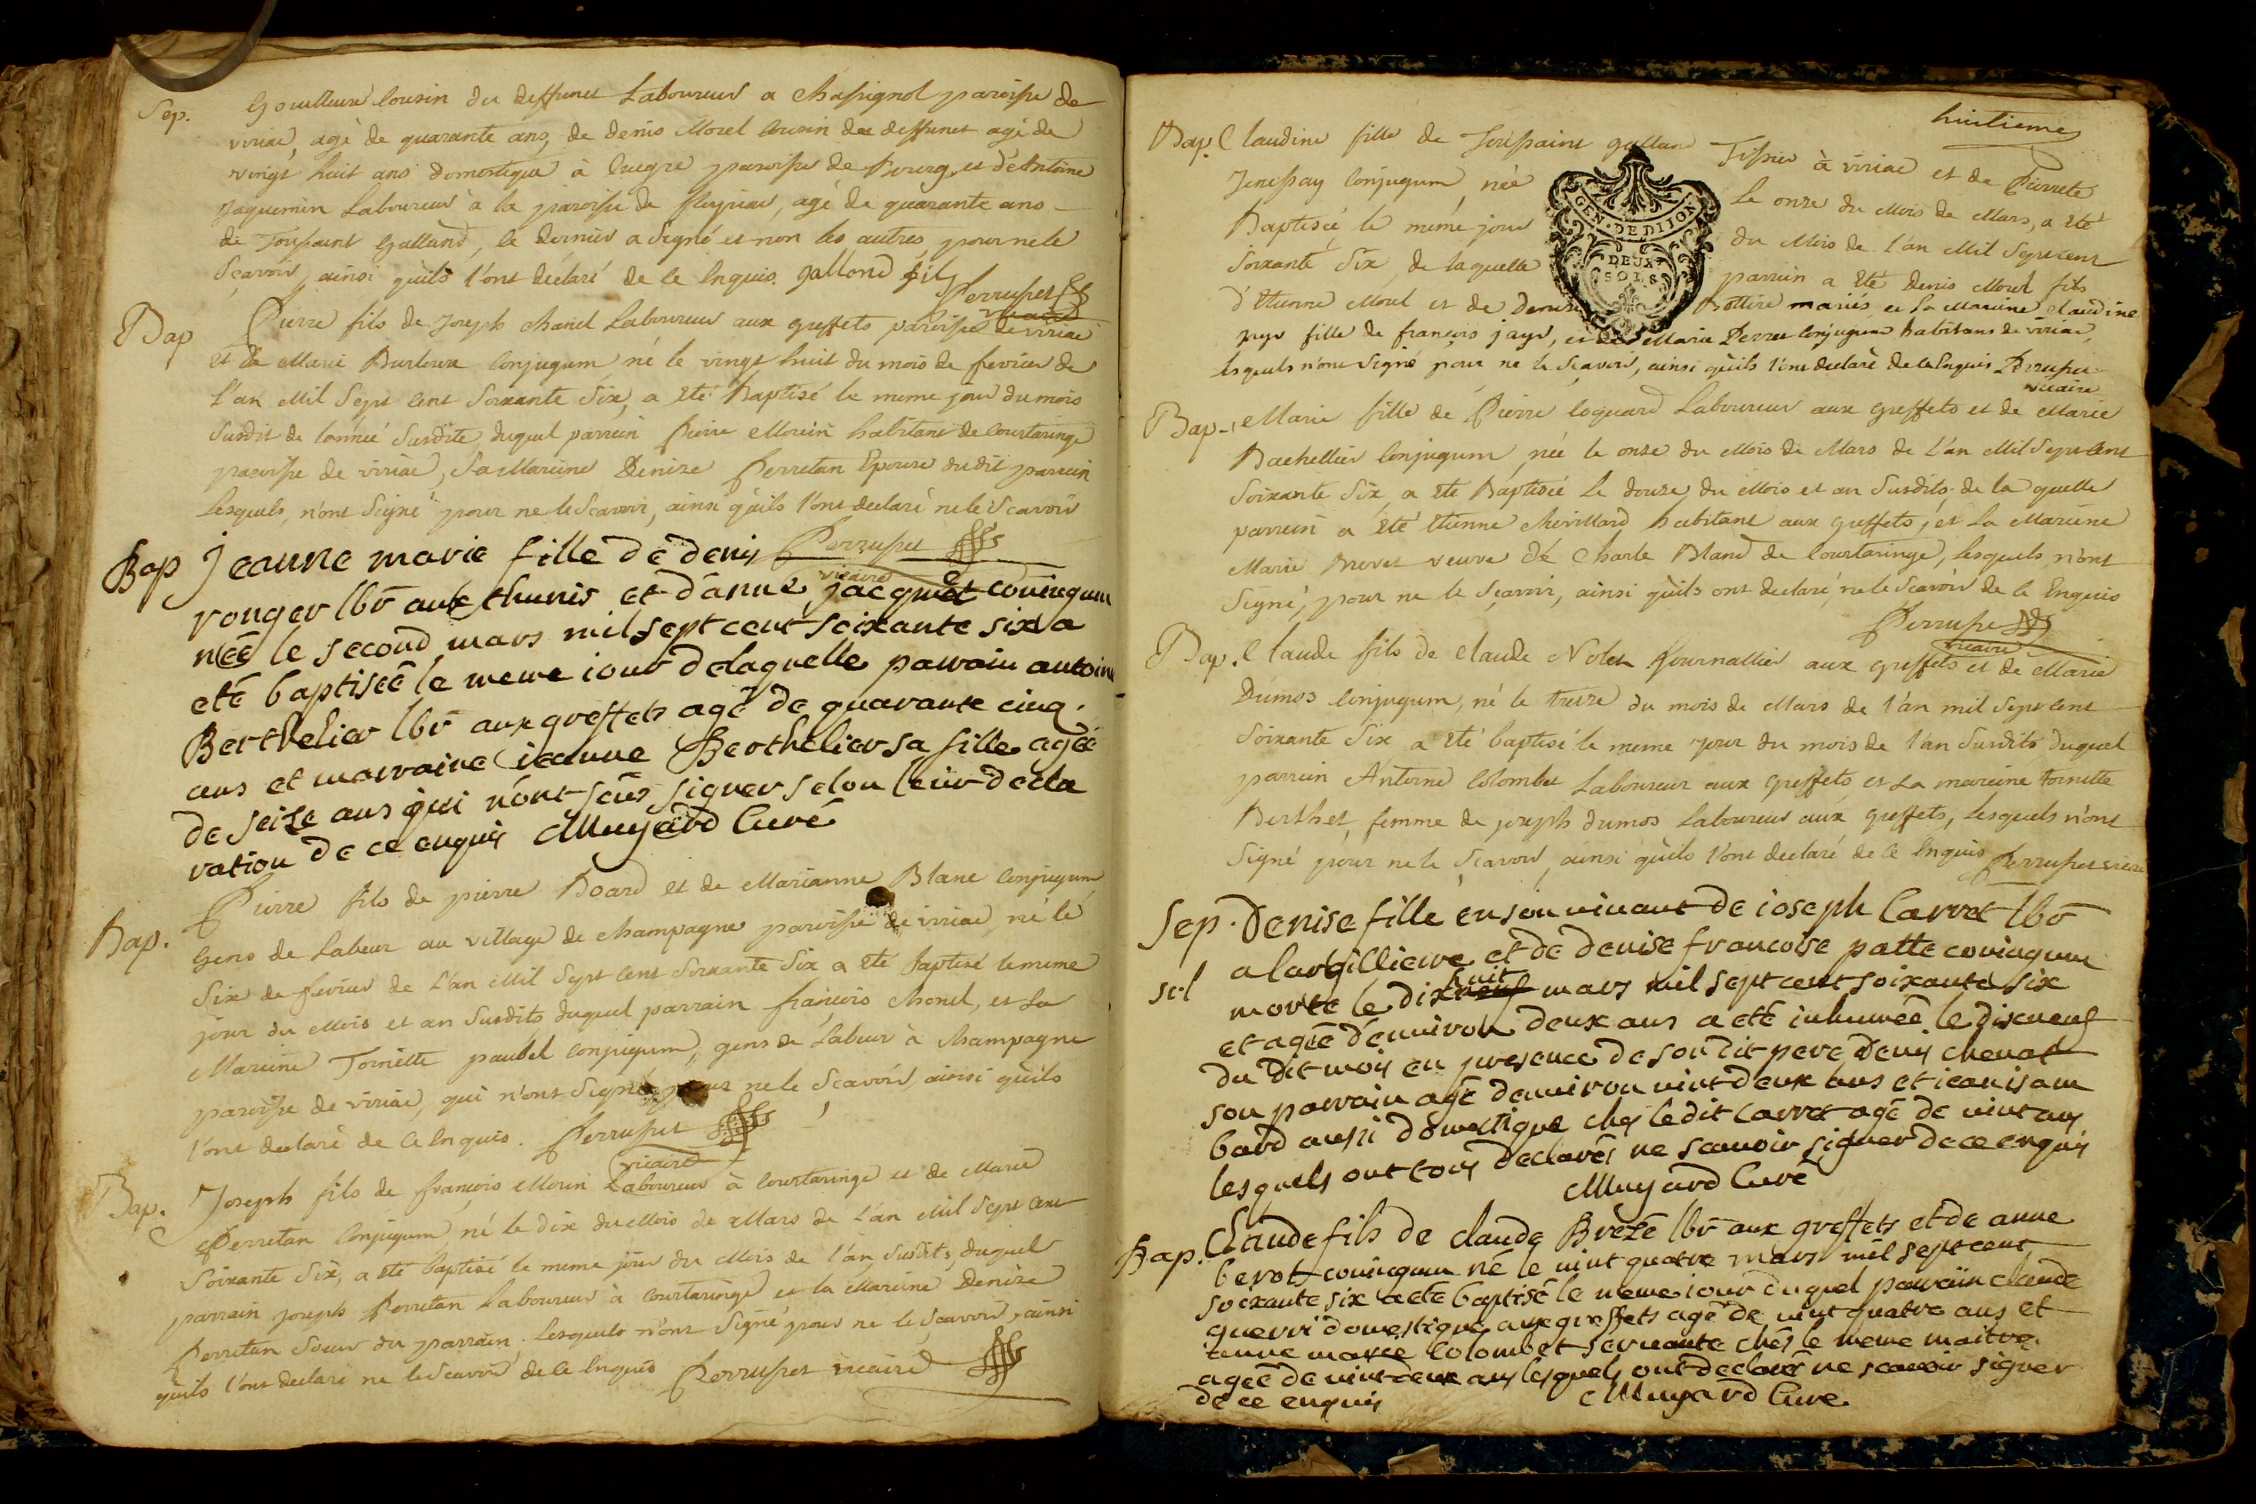 Sep. Gouilleux Cousin du deffunct Laboureur a Chassignol paroisse de
viriac, agé de quarante ans, de denis Morel Cousin du deffunct agé de
vingt huit ans domestique à paroisse de Bourg, et d'Antoine
jaquemin Laboureur à la paroisse de fleyriac, agé de quarante ans
de Toussaint Galland, le dernier a Signé et non les autres, pour ne le
Sçavoir, ainsi qu'ils l'ont déclaré de ce Enquis. galland fils
Perruset
vicaire
Bap Pierre fils de Joseph chanel Laboureur aux greffets paroisse de viriac
et de Marie Burtoux Conjugum né le vingt huit du mois de fevrier de
L'an Mil Sept Cent Soixante Six, a été Baptisé le meme jour du mois
Susdit de l'année Susdite duquel parrein Pierre Morin habitant de Courtaringe
paroisse de viriac, Sa Mareine Denize Perretan Epouse dudit parrein
Lesquels, n'ont Signé pour ne le Scavoir, ainsi qu'ils l'ont declaré ne le Scavoir
Perruset
vicaire
Bap jeanne marie fille de denis
ronger lbr aux thunis et d'anne jacquet coniugum
née le second mars mil sept cent soixante six a
eté baptiseé le meme iour de laquelle parrain antoine
Berthelier lbr aux greffets agé de quarante cinq
ans et marraine ieanne Berthelier sa fille ageé
de seize ans qui n'ont sçus signer selon leur decla
ration de ce enquis Muyard Curé
Bap. Pierre fils de pierre Board et de Marianne Blanc Conjugum
Gens de Labeur au village de champagne paroisse de viriac, né le
Six de fevrier de L'an Mil Sept Cent Soixante Six a été Baptisé le meme
jour du Mois et an Susdits duquel parrain françois chanel, et La
Mareine Toinette paubel Conjugum, gens de Labeur à Champagne
paroisse de viriac, qui n'ont Signé pour ne le Scavoir, ainsi qu'ils
l'ont declaré de Ce Enquis. Perruset
vicaire
Bap. Joseph fils de françois Morin Laboureur à Courtaringe et de Marie
Perretan Conjugum né le dix du Mois de Mars de L'an Mil Sept Cent
Soixante Six, a été baptisé le meme jour du Mois de l'an Susdits, duquel
parrain joseph Perretan Laboureur à Courtaringe et la Mareine Denize
Perretan Soeur du parrain, Lesquels n'ont Signé pour ne le Scavoir, ainsi
qu'ils l'ont declaré ne le Scavoir de Ce Enquis Perruset vicaire
huitieme
GEN. DE DIJON
DEUX
SOLS
Bap. Claudine fille de Toussaint gallan Tissier à viriac et de Pierrete
Jenessay Conjugum, née Le onze du Mois de Mars, a été
Baptisée le meme jour du Mois de l'an Mil Sept Cent
Soixante Six, de laquelle parrein a été denis Morel fils
d'Etienne Morel et de denise Bottier mariés, et La Mareine claudine
jaÿr fille de françois jaÿr, et de Marie Perret Conjugum habitans de viriac,
lesquels n'ont Signé pour ne le Sçavoir, ainsi qu'ils l'ont declaré de Ce Enquis Perruset
vicaire
Bap. Marie fille de Pierre loquard Laboureur aux greffets et de Marie
Bachellier Conjugum, née le onze du Mois de Mars de L'an Mil Sept Cent
Soixante Six, a été Baptisée Le douze du Mois et an Susdits de la quelle
parrein a été Etienne chevillard habitant aux greffets, et La Mareine
Marie Brevet veuve de Charle Bland de Courtaringe, lesquels n'ont
Signé, pour ne le Sçavoir, ainsi qu'ils ont declaré ne le Scavoir de Ce Enquis
Perruset
vicaire
Bap. Claude fils de claude Nolet Journallier aux greffets et de Marie
Dumos Conjugum, né le treize du mois de Mars de l'an mil Sept Cent
Soixante Six a été baptisé le meme jour du mois de l'an Susdits, duquel
parrein Antoine Colombet Laboureur aux greffets et La mareine toinette
Berthet, femme de joseph dumos Laboureur aux greffets, Lesquels n'ont
Signé pour ne le Sçavoir, ainsi qu'ils l'ont declaré de Ce Enquis Perruset vicaire
Sep. Denise fille en son vivant de ioseph Carret lbr
a largilliere et de denise francoise patte coniugum
morte le dix huit mars mil sept cent soixante six
et ageé d'environ deux ans a eté inhumeé le dixneuf
du dit mois en presence de son dit pere Denis chenat
son parrain agé d'environ vint deux ans et iean isam
bard aussi domestique ches le dit Carret agé de vint ans
lesquels ont tous declarés ne scavoir signer de ce enquis
Muyard Curé
Bap. Claude fils de claude Brezé lbr aux greffets et de anne
berot coniugum né le vint quatre mars mil sept cent
soixante six a eté baptisé le meme iour duquel parrain claude
querri domestique aux greffets agé de vint quatre ans et
anne marie Colombet servante chés le meme maitre
ageé de vint deux ans lesquels ont declaré ne scavoir signer
de ce enquis Muyard Curé.